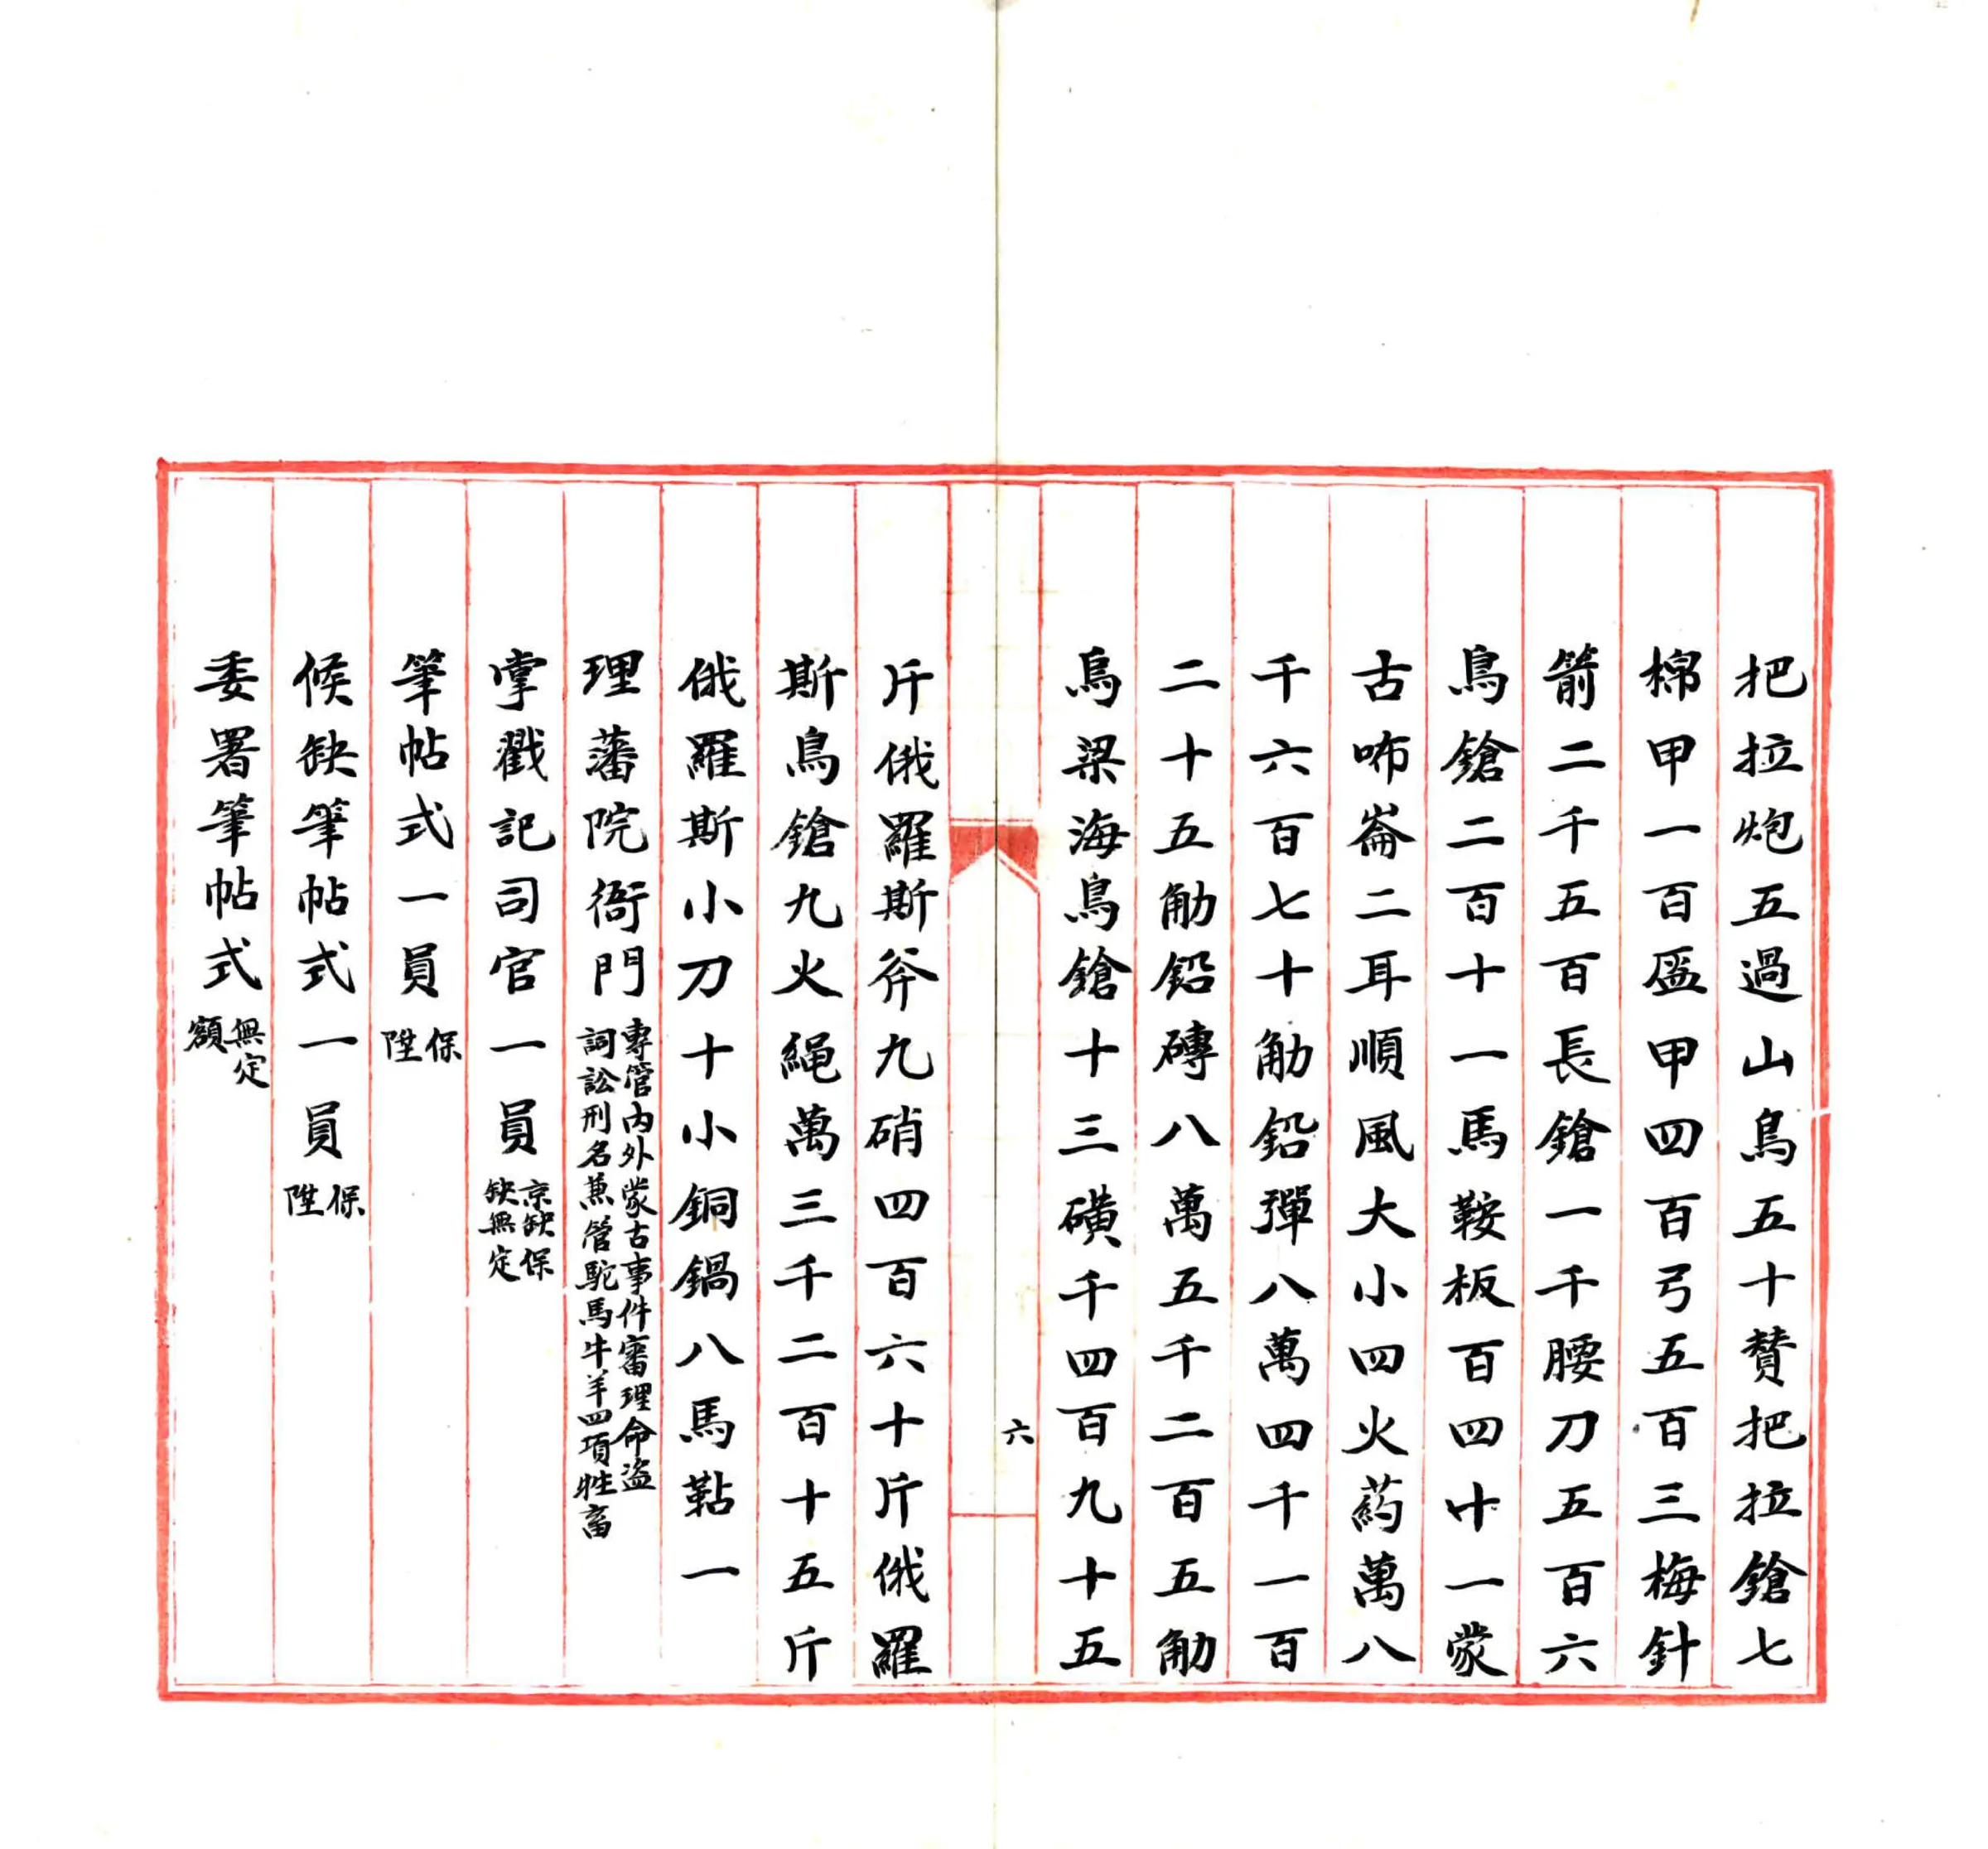 把拉炮五過山鳥五十賛把拉鎗七
棉甲一百盔甲四百弓五百三梅針
箭二千五百長鎗一千腰刀五百六
鳥鎗二百十一馬鞍板百四十一蒙
古咘崙二耳順風大小四火葯萬八
千六百七十觔鉛彈八萬四千一百
二十五觔鉛磚八萬五千二百五觔
烏梁海鳥鎗十三磺千四百九十五
六
斤俄羅斯斧九硝四百六十斤俄羅
斯鳥鎗九火繩萬三千二百十五斤
俄羅斯小刀十小銅鍋八馬鞊一
理藩院衙門
專管內外蒙古事件審理命盗
詞訟刑名兼管駝馬牛羊四項牲畜
掌戳記司官一員
京缺保
缺無定
筆帖式一員
保
陞
候缺筆帖式一員
保
陞
委署筆帖式
無定
額